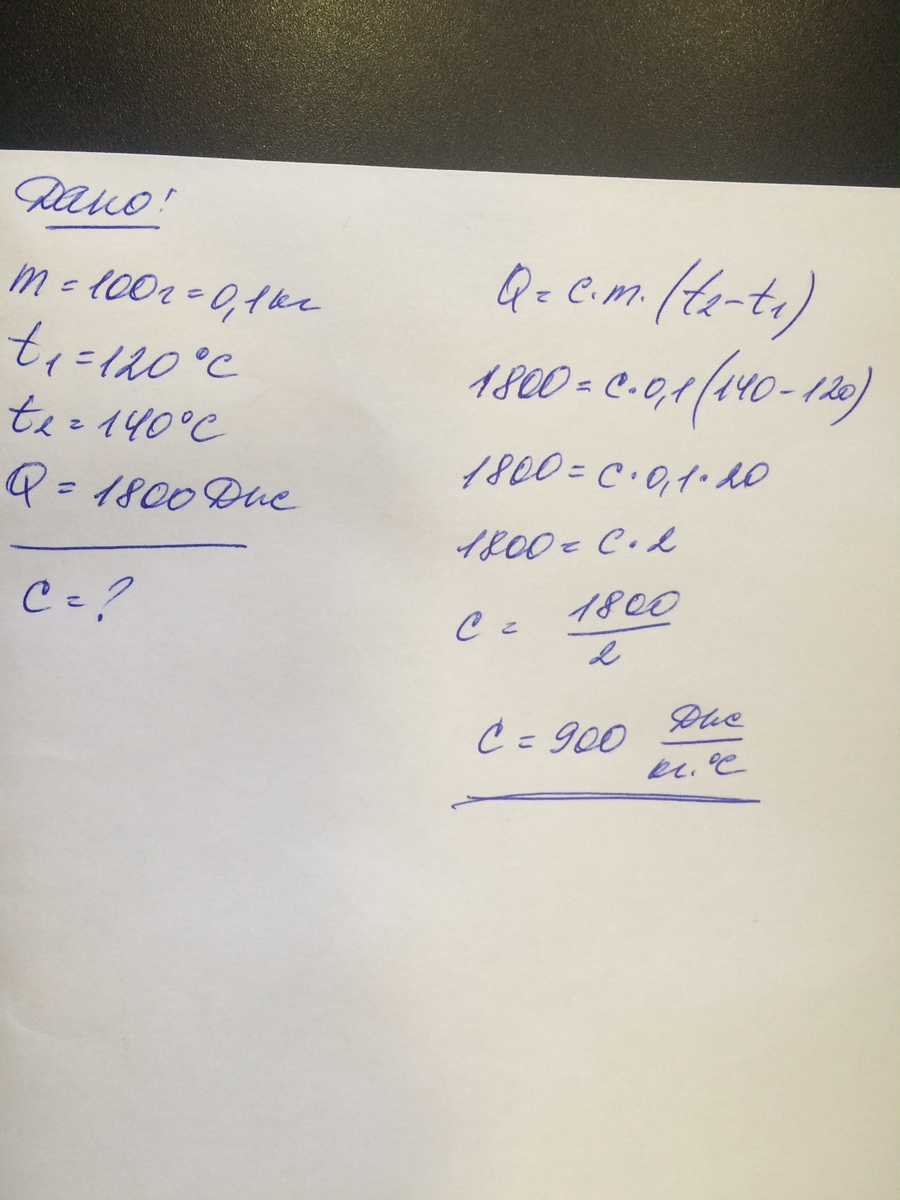 Дано:
m = 100г = 0,1кг
t₁ = 120 °C
t₂ = 140°C
Q = 1800 Дж
C = ?
Q = c·m·(t₂-t₁)
1800 = c·0,1(140-120)
1800 = c·0,1·20
1800 = c·2
c = 1800/2
c = 900 Дж/кг·°C